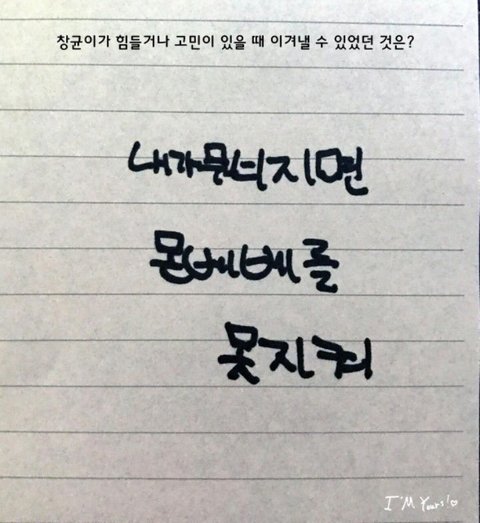 창균이가 힘들거나 고민이 있을 때 이겨낼 수 있었던 것은?
내가무너지면
몬베베를
못지켜
I'M Yours!♡